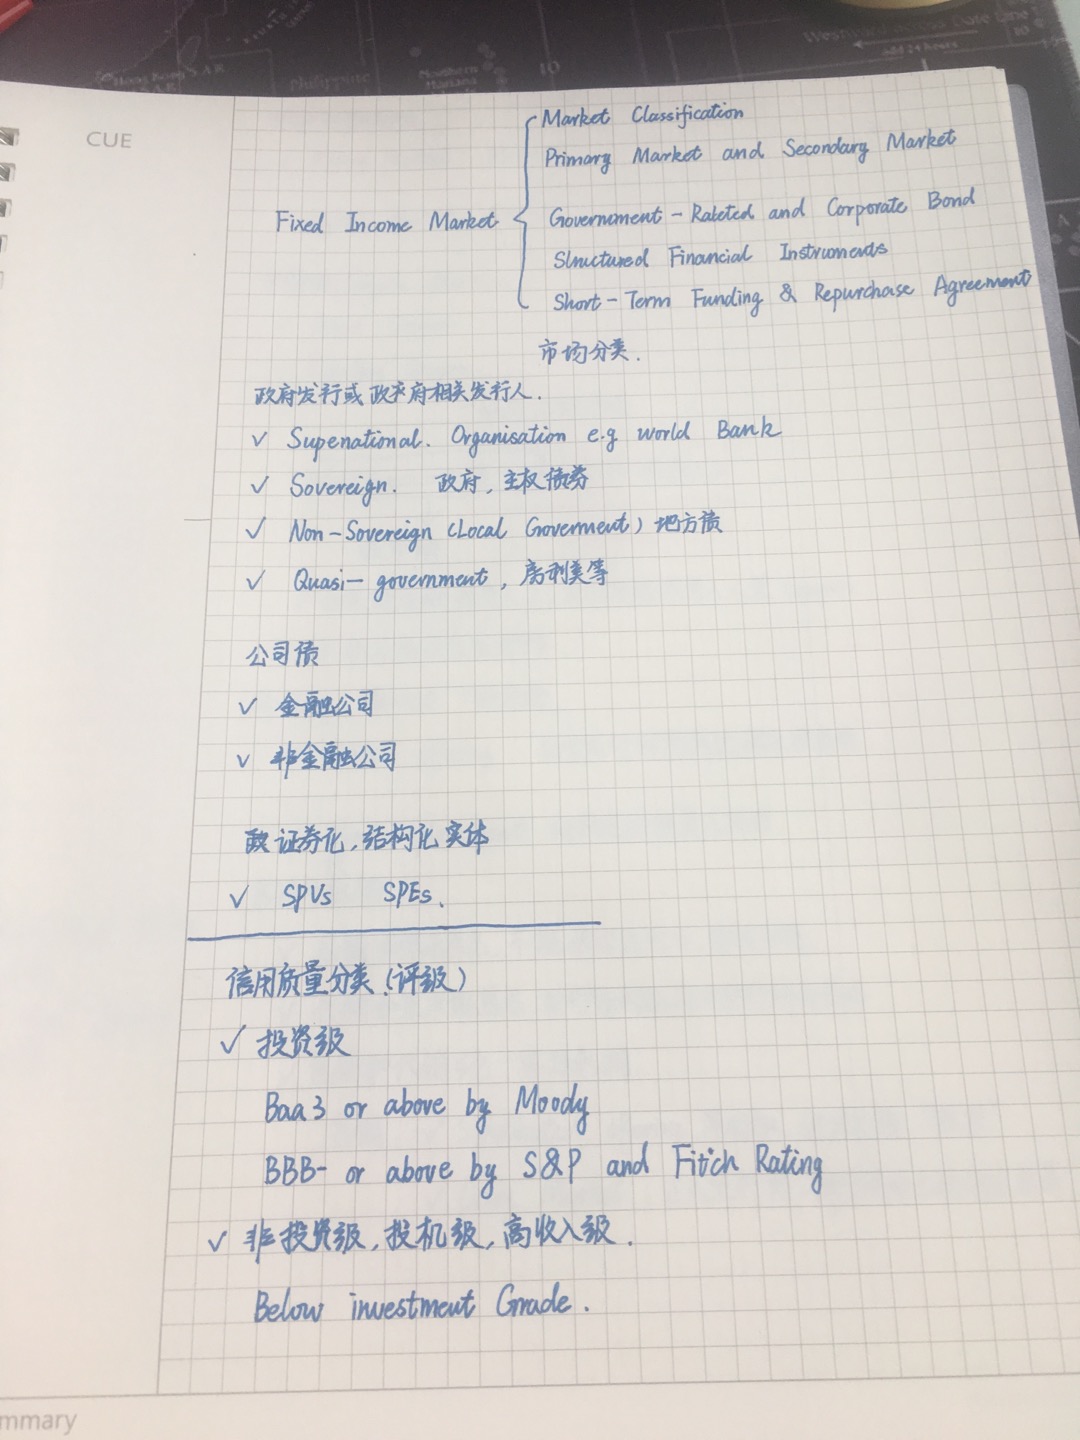 Westward across Date line
add 24 hours
Hong Kong S.A.R.
Philippine
Northern
Mariana
10
CUE
Market Classification
Primary Market and Secondary Market
Fixed Income Market
Government-Rateted and Corporate Bond
Structured Financial Instruments
Short-Term Funding & Repurchase Agreement
市场分类.
政府发行或政府相关发行人.
✓ Supenational. Organisation e.g world Bank
✓ Sovereign. 政府,主权债券
✓ Non-Sovereign (Local Goverment) 地方债
✓ Quasi-government, 房利美等
公司债
✓ 金融公司
✓ 非金融公司
证券化,结构化实体
✓ SPVs SPEs.
信用质量分类(评级)
✓ 投资级
Baa3 or above by Moody
BBB- or above by S&P and Fitch Rating
✓ 非投资级,投机级,高收入级.
Below investment Grade.
mmary